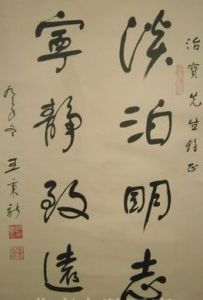 治寶先生雅正
淡泊明志
寧靜致遠
冬 王秉新